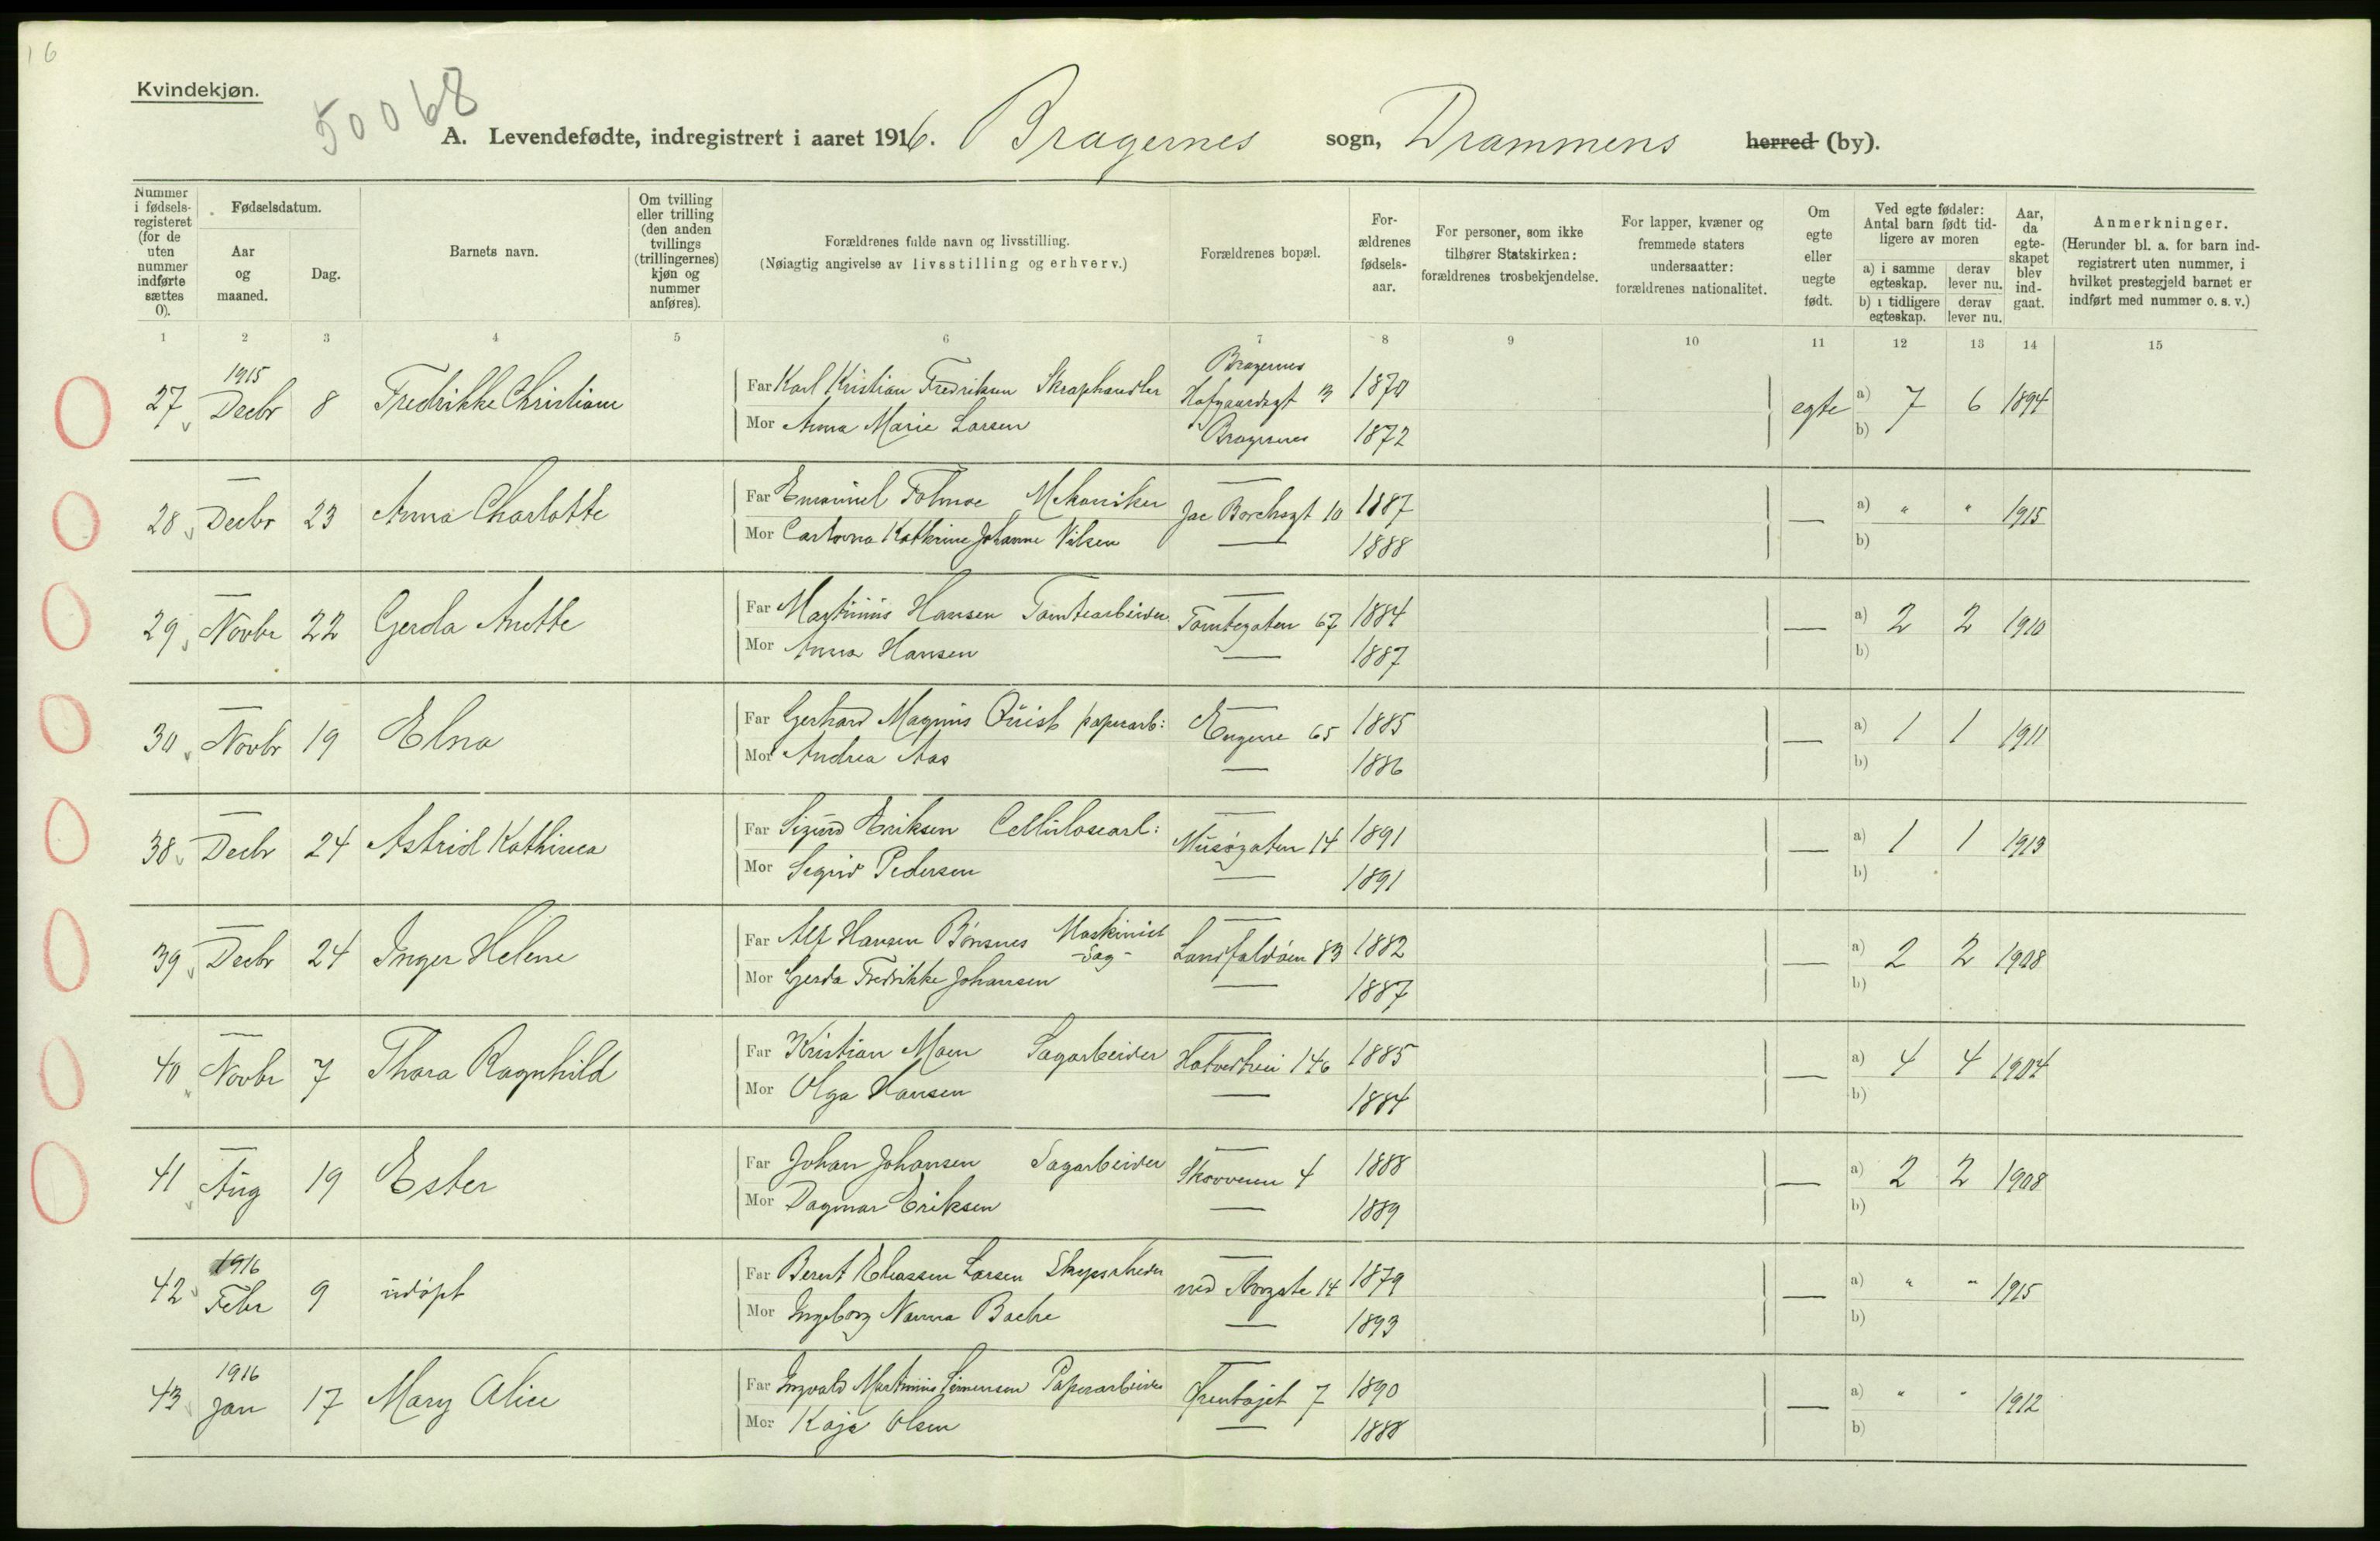 16
Kvindekjøn.
50068
A. Levendefødte, indregistrert i aaret 1916. Bragernes sogn, Drammens herred (by).
Nummer i fødsels-registeret (for de uten nummer indførte sættes 0).
Fødselsdatum.
Aar og maaned.
Dag.
Barnets navn.
Om tvilling eller trilling (den anden tvillings (trillingernes) kjøn og nummer anføres).
Forældrenes fulde navn og livsstilling.
(Nøiagtig angivelse av livsstilling og erhverv.)
Forældrenes bopæl.
For-ældrenes fødsels-aar.
For personer, som ikke tilhører Statskirken: forældrenes trosbekjendelse.
For lapper, kvæner og fremmede staters undersaatter: forældrenes nationalitet.
Om egte eller uegte født.
Ved egte fødsler: Antal barn født tid-ligere av moren
a) i samme egteskap. derav lever nu.
b) i tidligere egteskap. derav lever nu.
Aar, da egte-skapet blev ind-gaat.
Anmerkninger.
(Herunder bl. a. for barn ind-registrert uten nummer, i hvilket prestegjeld barnet er indført med nummer o. s. v.)
1 2 3 4 5 6 7 8 9 10 11 12 13 14 15
1915 Bragernes
27 Decbr 8 Fredrikke Christiane Far Karl Kristian Fredriksen Skraphandler Hofgaardsgt 13 1870 egte a) 7 6 1894
Mor Anna Marie Larsen Bragernes 1872 b)
28 — Decbr 23 Anna Charlotte Far Emanuel Tolmoe Mekaniker Jac Borchsgt 10 1887 — a) " " 1915
Mor Kathrine Johanne Nilsen — 1888 b)
29 — Novbr 22 Gerda Anette Far Martinius Hansen Tomtearbeider Tomtegaten 67 1884 — a) 2 2 1910
Mor Anna Hansen — 1887 b)
30 — Novbr 19 Elna Far Gerhard Magnus Quist paperarb: Engene 65 1885 — a) 1 1 1911
Mor Andrea Aas — 1886 b)
38 — Decbr 24 Astrid Kathinca Far Sigurd Eriksen Cellulosearb: 14 1891 — a) 1 1 1913
Mor Segrid Pedersen — 1891 b)
39 — Decbr 24 Inger Helene Far Alf Hansen Bönsnes Maskinist -Sag- Landfaldöen 83 1882 — a) 2 2 1908
Mor Gerda Fredrikke Johansen — 1887 b)
40 — Novbr 7 Thora Ragnhild Far Kristian Moen Sagarbeider 146 1885 — a) 4 4 1904
Mor Olga Hansen — 1884 b)
41 — Aug 19 Ester Far Johan Johansen Sagarbeider Skovveien 4 1888 — a) 2 2 1908
Mor Dagmar Eriksen — 1889 b)
1916
42 Febr 9 udöpt Far Berent Eliassen Larsen 14 1879 — a) " " 1915
Mor Ingeborg Nanna Bache — 1893 b)
1916
43 Jan 17 Mary Alice Far Ingvald Martinius Simensen Paperarbeider 7 1890 — a) " " 1912
Mor Kaja Olsen — 1888 b)